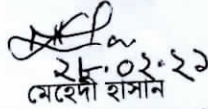 ২৮.০২.২২
মেহেদী হাসান